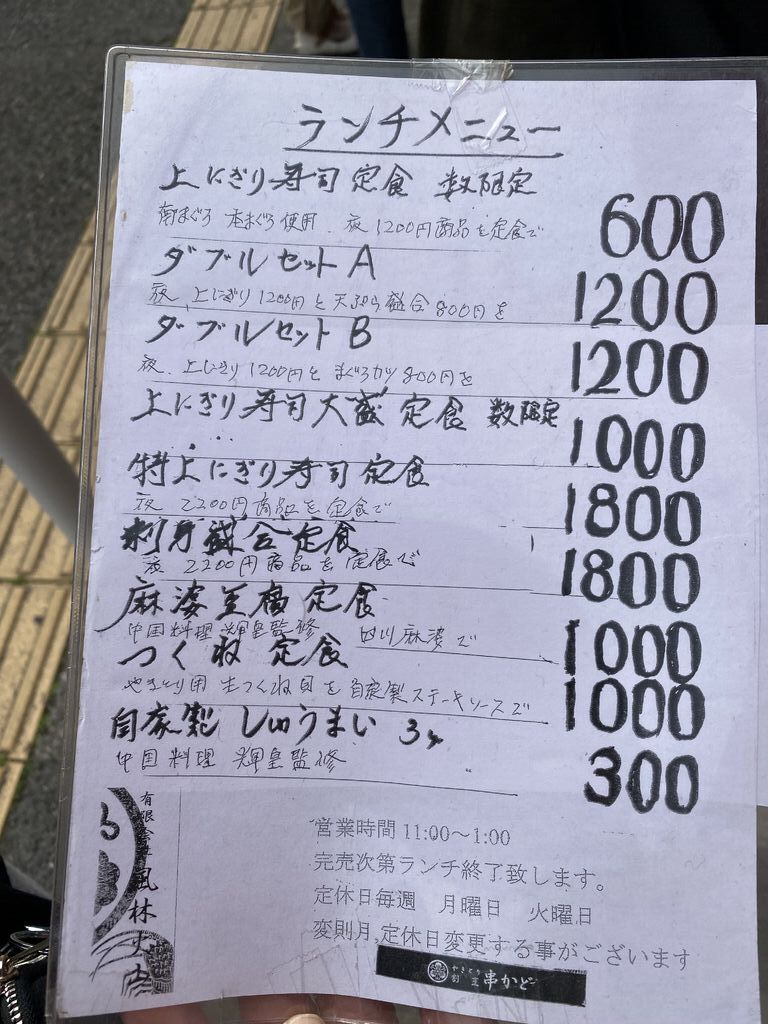 ランチメニュー
上にぎり寿司定食 数限定 600
南まぐろ 本まぐろ使用. 夜1200円商品を定食で
ダブルセットA 1200
夜. 上にぎり1200円と天ぷら盛合800円を
ダブルセットB 1200
夜. 上にぎり1200円と まぐろカツ800円を
上にぎり寿司大盛定食 数限定 1000
特上にぎり寿司定食 1800
夜 2200円商品を定食で
刺身盛合定食 1800
夜 2200円商品を定食で
麻婆豆腐定食 1000
中国料理 輝皇監修 四川麻婆で
つくね定食 1000
やきとり用 生つくね
を自家製ステーキソースで
自家製しゅうまい 3ヶ 300
中国料理 輝皇監修
営業時間11:00～1:00
完売次第ランチ終了致します。
定休日毎週 月曜日 火曜日
変則月,定休日変更する事がございます
有限会社 風林火山
やきとり
串かど